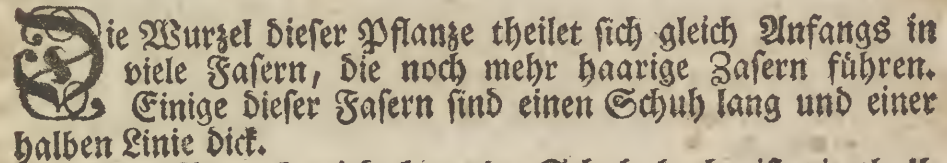 Die Wurzel dieser Pflanze theilet sich gleich Anfangs in
viele Fasern, die noch mehr haarige Zasern führen.
Einige dieser Fasern sind einen Schuh lang und einer
halben Linie dick.